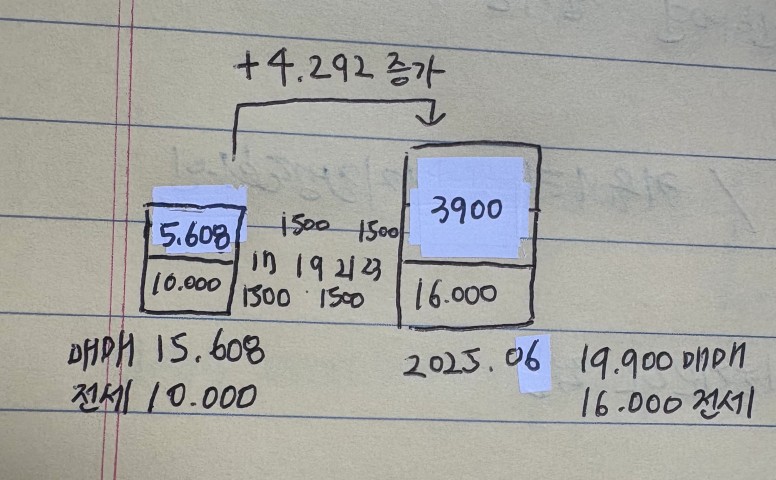 +4.292 증가
5.608
10.000
1500 1500
17 19 21 23
1500 1500
3900
16.000
매매 15.608
전세 10.000
2025.06
19.900 매매
16.000 전세